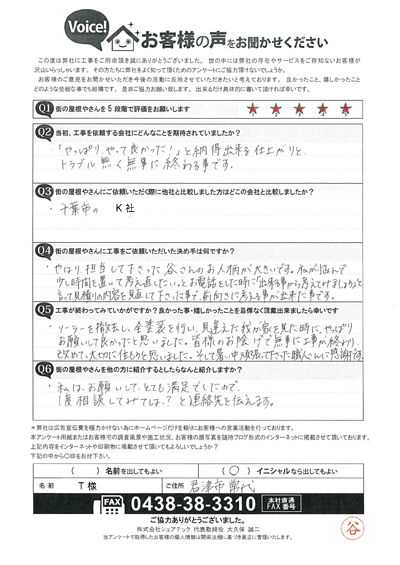 Voice!
お客様の声をお聞かせください
この度は弊社に工事をご用命頂き誠にありがとうございました。 世の中には弊社の存在やサービスをご存知ないお客様が
沢山いらっしゃいます。 その方たちに弊社をよく知って頂くためのアンケートにご協力頂けないでしょうか。
お客様のご意見をお聞かせいただき今後の活動に反映させていただきたいと考えております。 良かったこと、嬉しかったこと
どのような些細な事でも結構です。 是非ご協力お願い致します。 出来るだけ具体的に書いて頂ければ幸いです。
Q1 街の屋根やさんを5段階で評価をお願いします ★ ★ ★ ★ ★
Q2 当初、工事を依頼する会社にどんなことを期待されていましたか?
・「やっぱり、やって良かった!」と納得出来る仕上がりと、
トラブル無く無事に終わる事です。
Q3 街の屋根やさんにご依頼いただく際に他社と比較しました方はどこの会社と比較しましたか?
・千葉市の K社
Q4 街の屋根やさんに工事をご依頼いただいた決め手は何ですか?
・やはり、担当して下さった谷さんのお人柄が大きいです。私が悩んで
少し時間を置いて考え直したい。とお電話をした時に「出来る事から考えてみましょう」と
言って見積りの内容を見直して下さった事で、前向きに考える事が出来た事です。
Q5 工事が終わってみていかがですか?良かった事・嬉しかったことを忌憚なく頂戴出来ましたら幸いです
・ソーラーを撤去し、全塗装を行い、見違えた我が家を見た時に、やっぱり
お願いして良かったと思いました。皆様のお陰で無事に工事が終わり、
改めて、大切に住もうと思いました。そして暑い中頑張って下さった職人さんに感謝です。
Q6 街の屋根やさんを他の方に紹介するとしたらなんと紹介しますか?
・私は、お願いして、とても満足でしたので、
「1度相談してみては?」と連絡先を伝えます。
*弊社は広告宣伝費を極力かけない為にホームページだけを頼りにお客様からお声掛けいただいております。
本アンケート用紙またはお客様宅の調査風景や施工状況、お客様の顔写真を随時ブログ形式のインターネットに掲載させて頂いております。
上記内容をインターネットや印刷物に掲載させて頂いてもよろしいでしょうか?
下記の中から○印をお付け下さい。
( ) 名前を出してもよい ( ○ ) イニシャルなら出してもよい
名 前 T様 ご住所 君津市常代
FAX 0438-38-3310 本社直通 FAX番号
ご協力ありがとうございました。
株式会社シェアテック 代表取締役 大久保 誠二
当アンケートで取得したお客様の個人情報は関係法規に基づき厳正に管理いたします。
谷